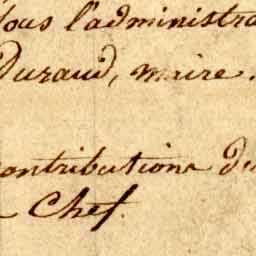 sous l'administra
Duraud, maire.
contributions du
Chef.